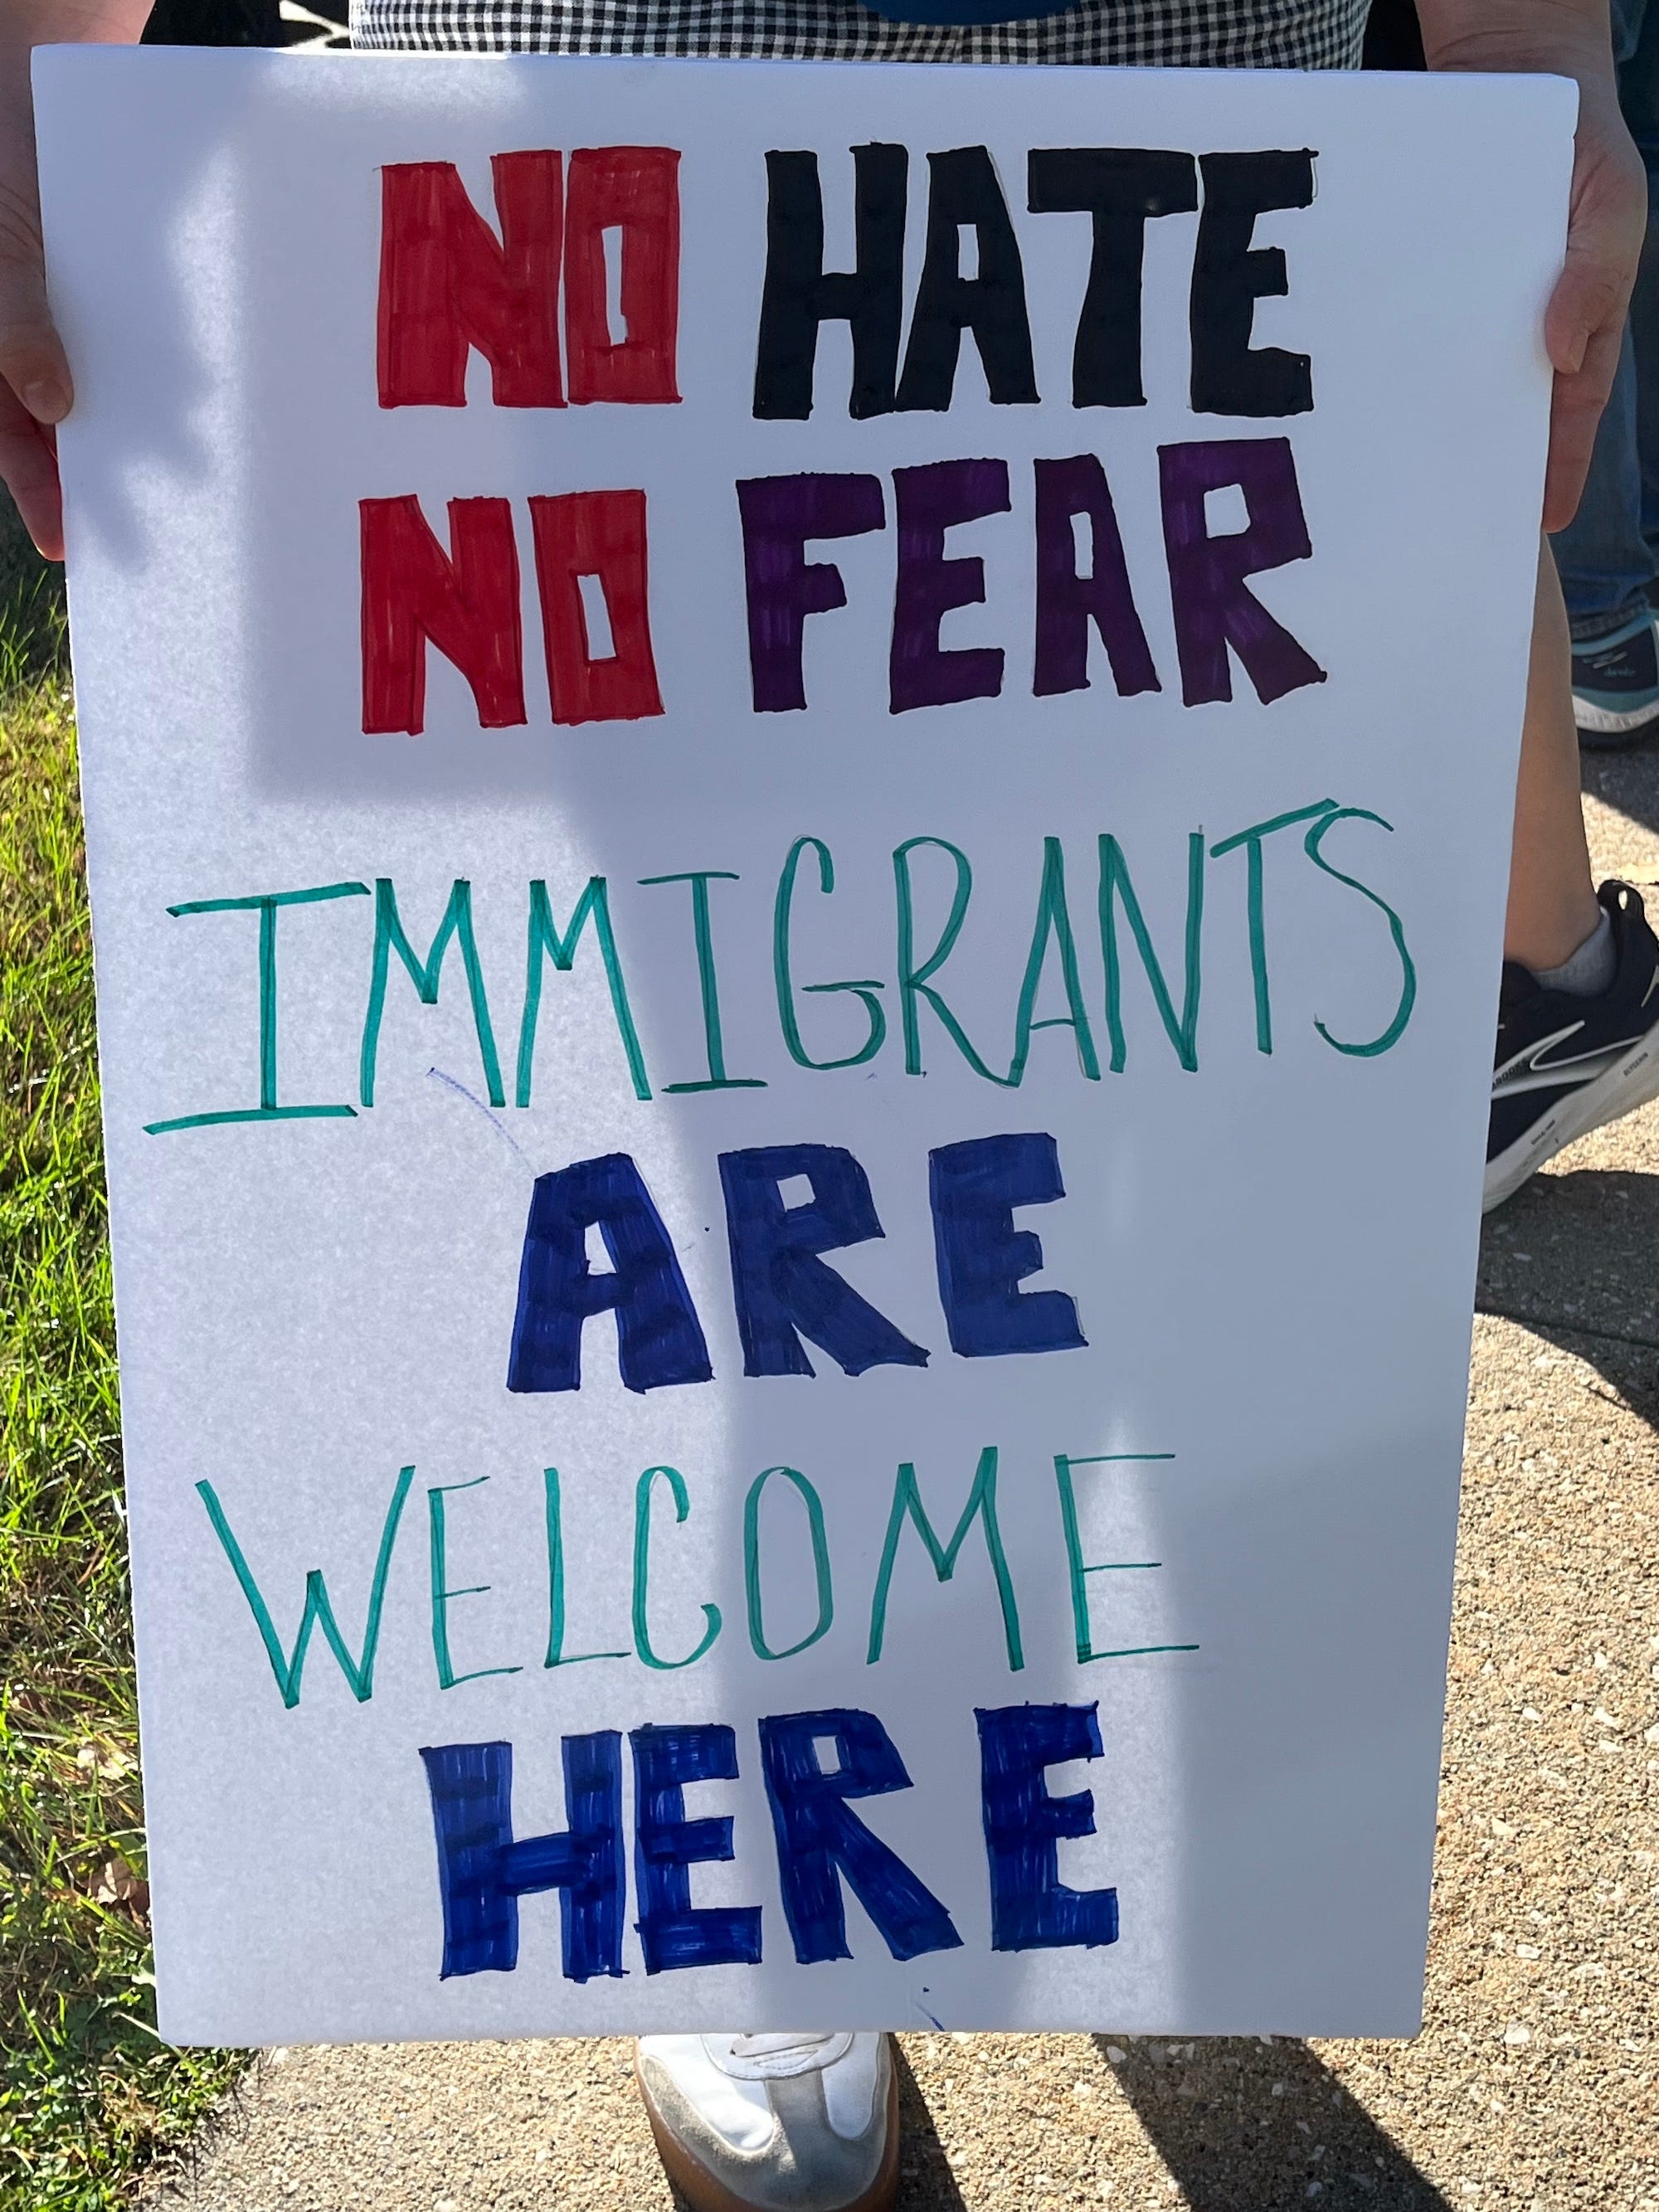 NO HATE
NO FEAR
IMMIGRANTS
ARE
WELCOME
HERE